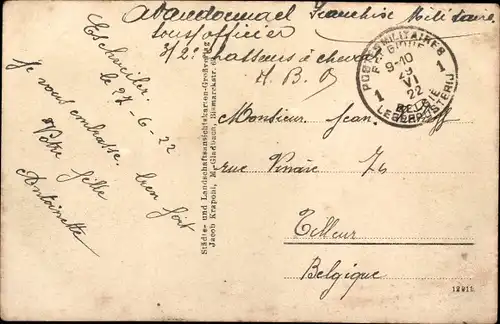 Franchise Militaire
sous officier
3/2e Chasseurs à cheval
A. B. O
Eschweiler.
le 27-6-22
Je vous embrasse bien fort
Votre fille
Antoinette
Städte- und Landschaftsansichtskarten-Großverlag
Jacob Krapohl, M.Gladbach, Bismarckstr.
POSTES MILITAIRES
BELGIQUE
1 1
9-10
29
VI
22
BELGIE
LEGERPOSTERIJ
Monsieur Jean
rue Vinâve 74
Tilleur
Belgique